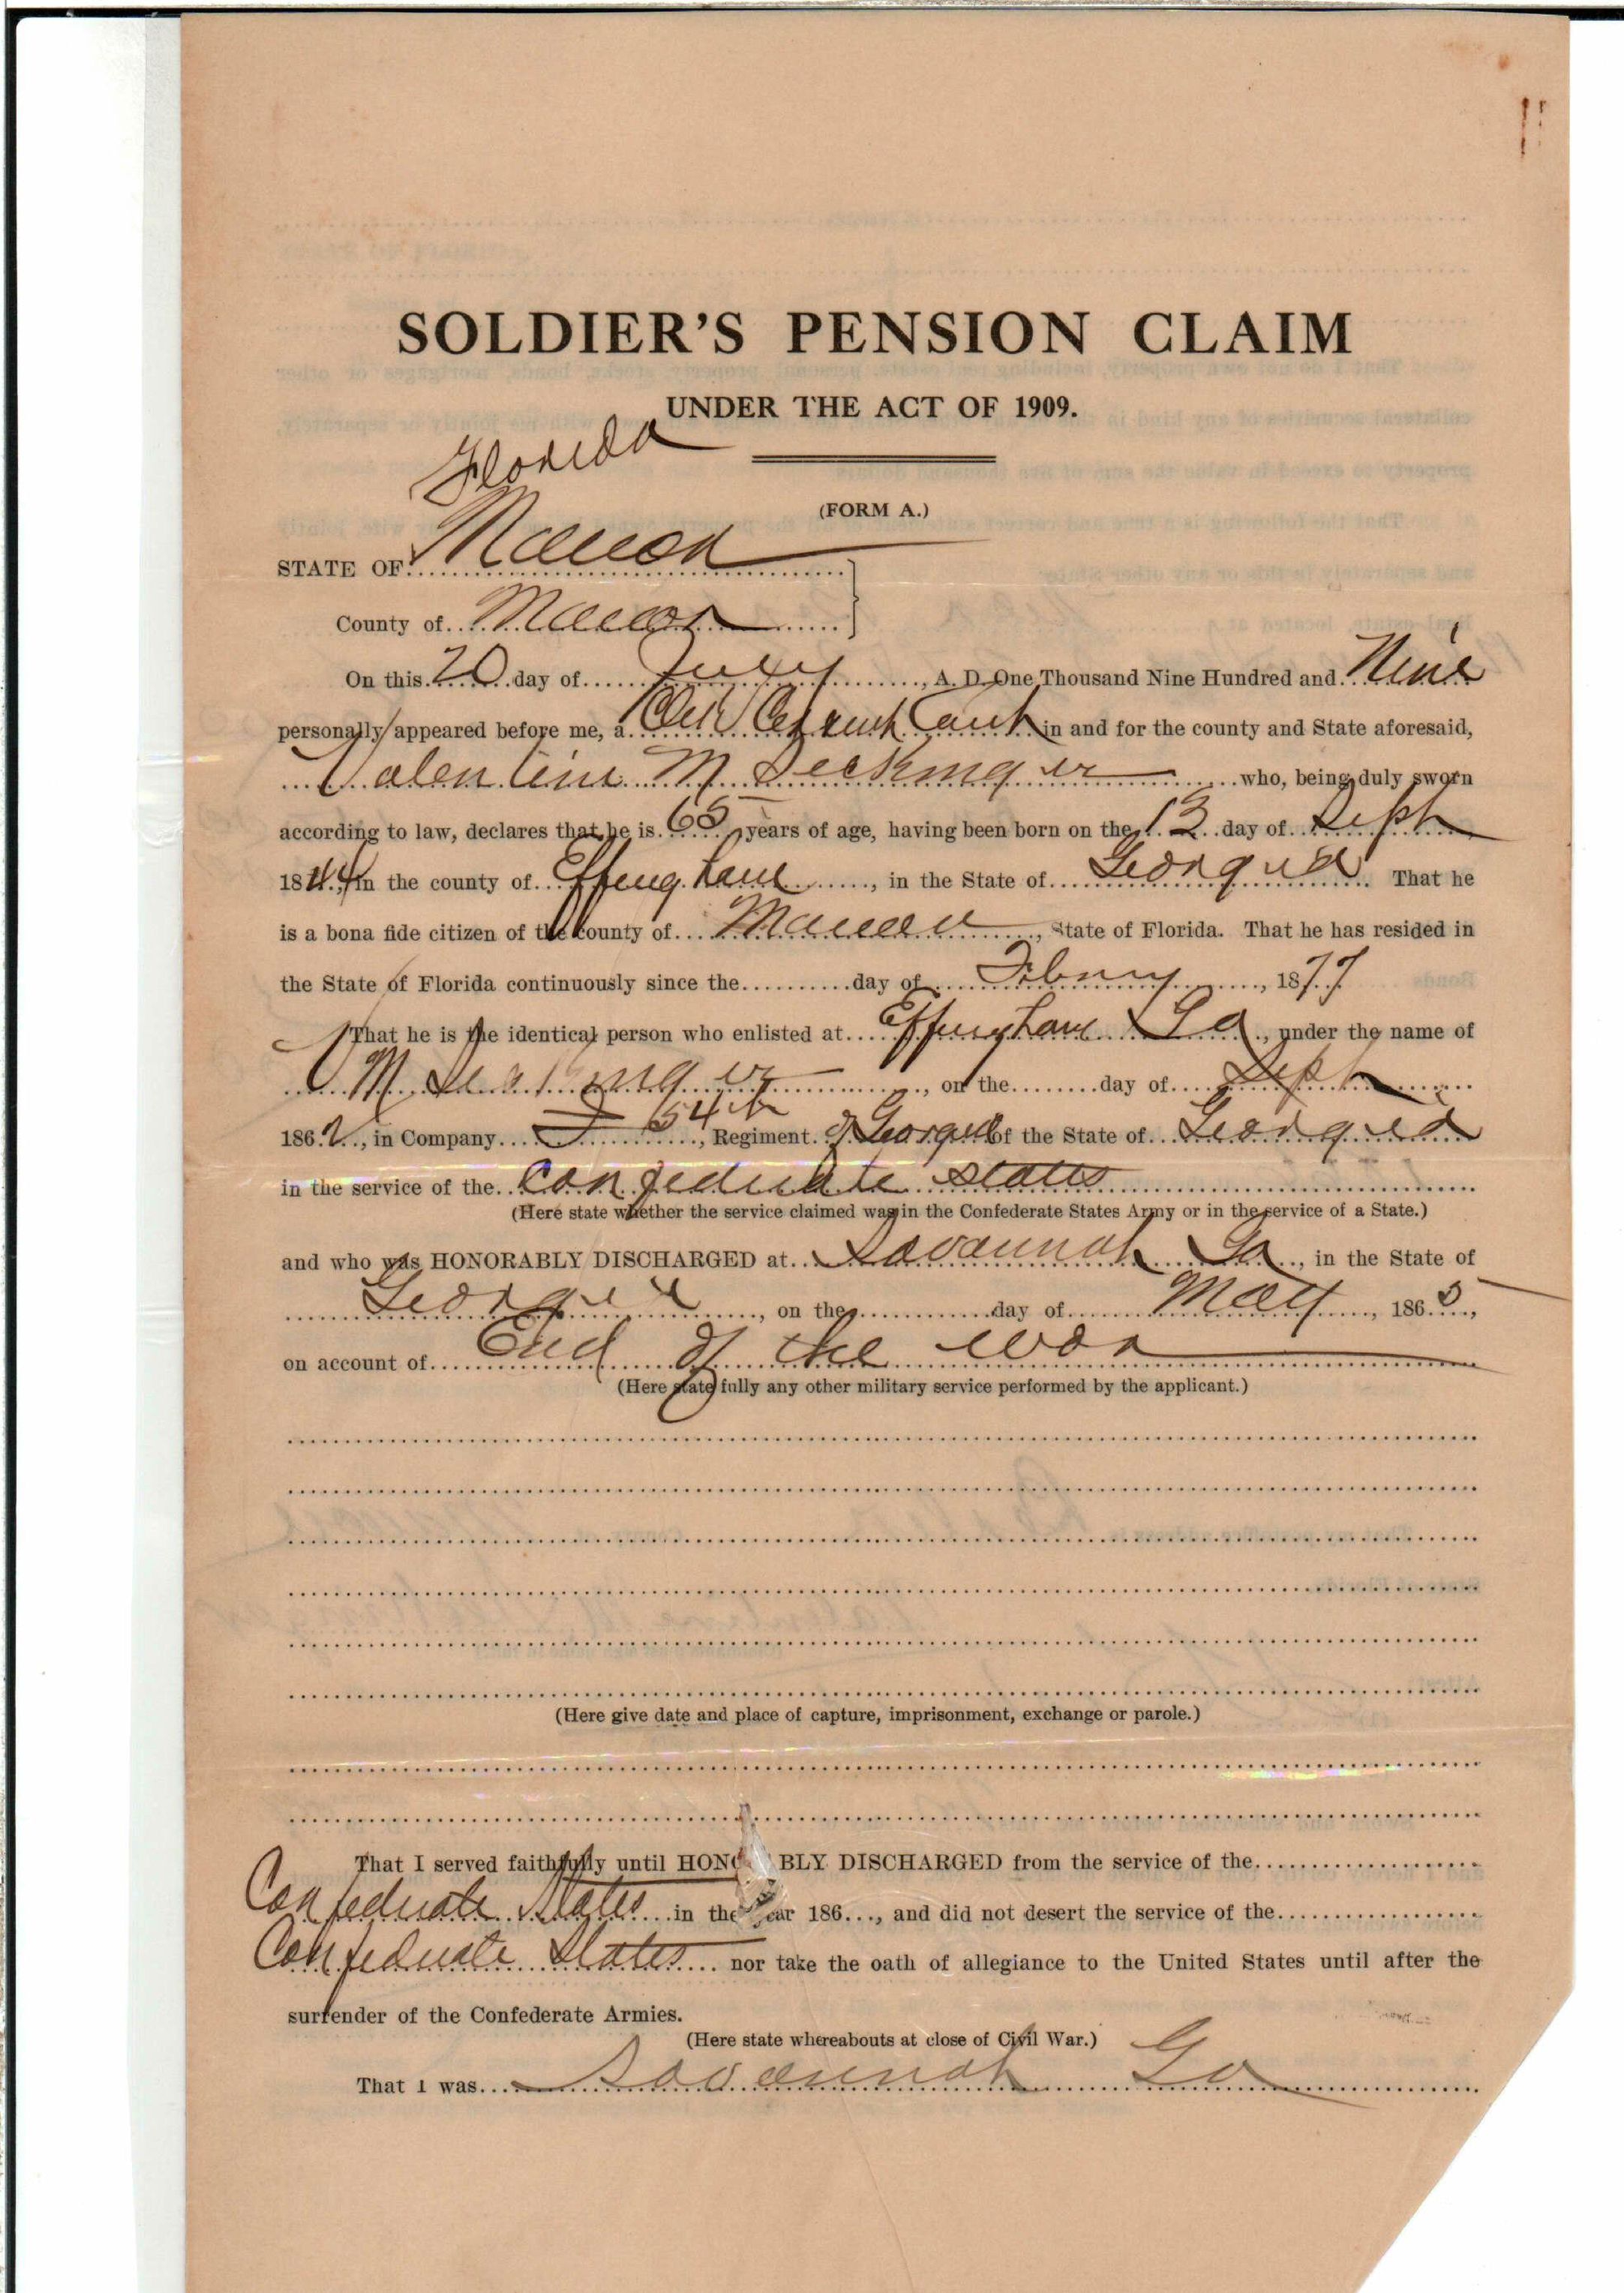 SOLDIER'S PENSION CLAIM
UNDER THE ACT OF 1909.
Florida
(FORM A.)
STATE OF Marion
County of Marion
On this 20 day of July, A. D. One Thousand Nine Hundred and Nine
personally appeared before me, a Clk Circuit Court in and for the county and State aforesaid,
Valentine M Seckinger who, being duly sworn
according to law, declares that he is 65 years of age, having been born on the 13 day of Sept
1844, in the county of Effingham, in the State of Georgia. That he
is a bona fide citizen of the county of Marion, State of Florida. That he has resided in
the State of Florida continuously since the day of Febury, 1877
That he is the identical person who enlisted at Effingham Ga, under the name of
V M Seckinger, on the day of Sept
1862, in Company I, 54th Regiment of Georgia of the State of Georgia
in the service of the Confederate States
(Here state whether the service claimed was in the Confederate States Army or in the service of a State.)
and who was HONORABLY DISCHARGED at Savannah Ga, in the State of
Georgia, on the day of May, 1865,
on account of End of the war
(Here state fully any other military service performed by the applicant.)
(Here give date and place of capture, imprisonment, exchange or parole.)
That I served faithfully until HONO BLY DISCHARGED from the service of the
Confederate States in the year 186..., and did not desert the service of the
Confederate States nor take the oath of allegiance to the United States until after the
surrender of the Confederate Armies.
(Here state whereabouts at close of Civil War.)
That I was Savannah Ga